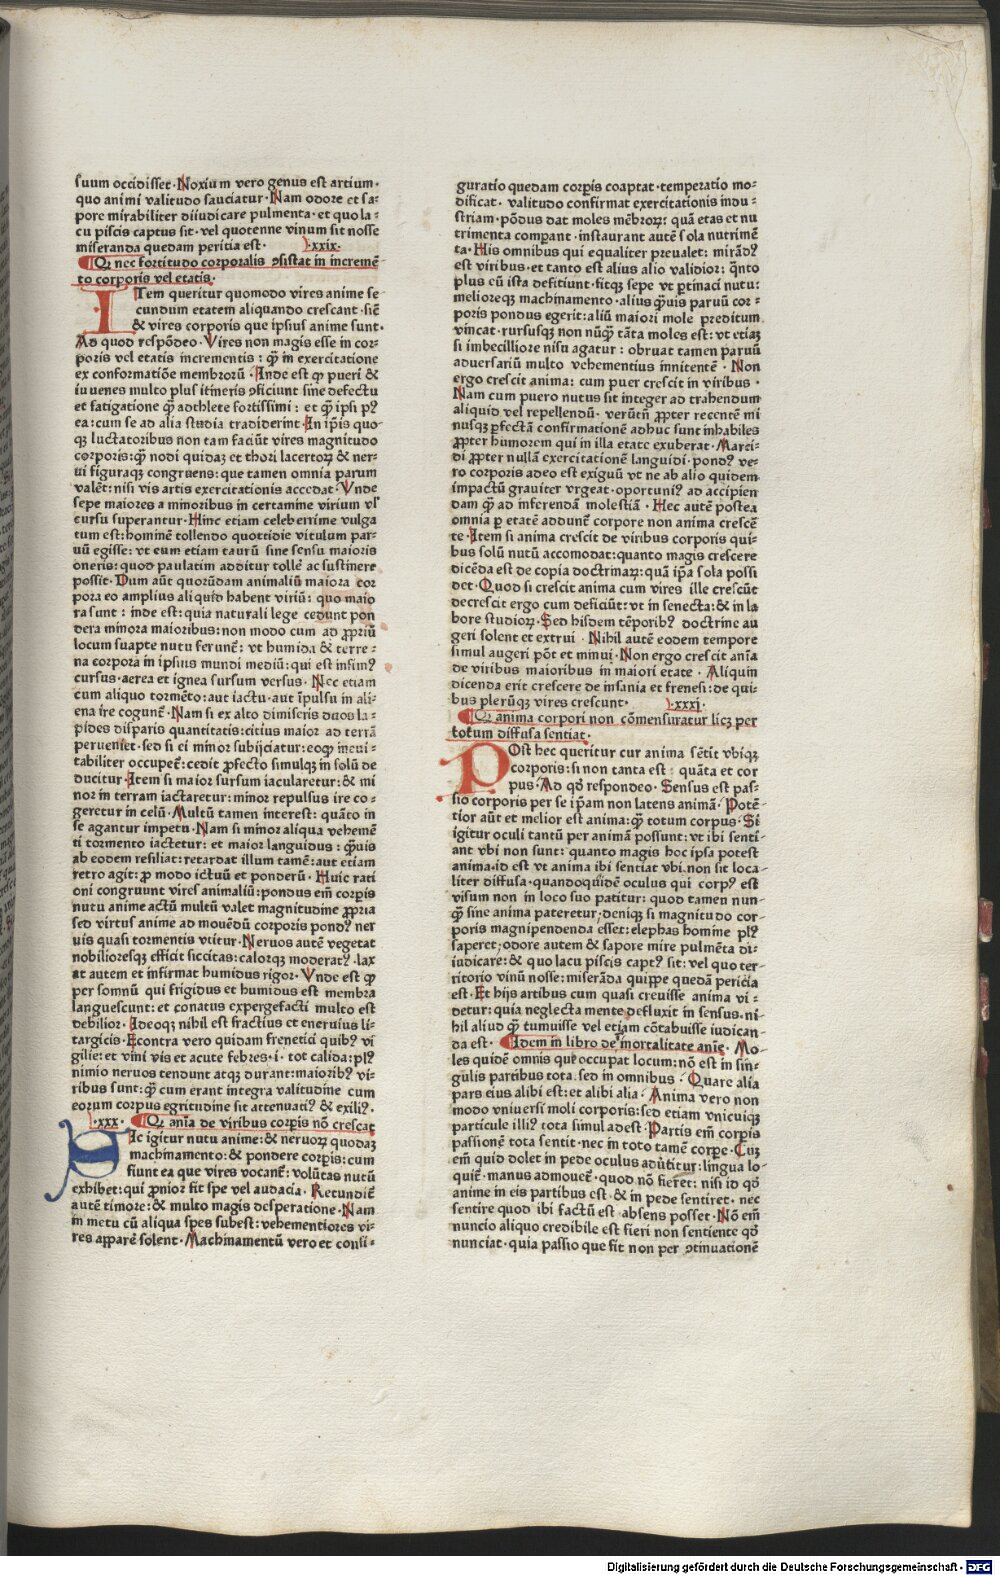 suum occidisset·Noxium vero genus est artium·
quo animi valitudo sauciatur·Nam odore et sa⸗
pore mirabiliter diiudicare pulmenta·et quo la⸗
cu piscis captus sit·vel quotenne vinum sit nosse
miseranda quedam pericia est· ·xxix·
Qꝫ nec fortitudo corporalis ꝯsistat in increme̅⸗
to corporis vel etatis·
ITem queritur quomodo vires anime se
cundum etatem aliquando crescant·sic̅
& vires corporis que ipsius anime sunt·
Ad quod respo̅deo·Vires non magis esse in cor⸗
poris vel etatis incrementis : qꝫ̅ in exercitatione
ex conformatio̅e membroru̅·Inde est qꝫ pueri &
iuuenes multo plus itineris ꝯficiunt sine defectu
et fatigatione qꝫ̅ adthlete fortissimi : et qꝫ̅ ipsi pꝰ
ea:cum se ad alia studia tradiderint·In ip̅is quo⸗
qꝫ luctatoribus non tam faciu̅t vires magnitudo
corporis:qꝫ̅ nodi quidaꝫ et thori lacertoꝝ & ner⸗
ui figuraqꝫ congruens:que tamen omnia parum
vale̅t:nisi vis artis exercitationis accedat·Vnde
sepe maiores a minoribus in certamine virium vl̅
cursu superantur·Hinc etiam celeberrime vulga
tum est:homine̅ tollendo quottidie vitulum par⸗
uu̅ egisse:vt eum etiam tauru̅ sine sensu maioris
oneris:quod paulatim additur tolle̅ ac sustinere
possit·Dum au̅t quoru̅dam animaliu̅ maiora cor
pora eo amplius aliquid habent viriu̅: quo maio
ra sunt : inde est:quia naturali lege cedunt pon
dera minora maioribus:non modo cum ad ꝓpriu̅
locum suapte nutu ferunt̅: vt humida & terre⸗
na corpora in ipsius mundi mediu̅:qui est infimꝰ
cursus·aerea et ignea sursum versus·Nec etiam
cum aliquo torme̅to:aut iactu·aut i̅pulsu in ali⸗
ena ire cogunt̅·Nam si ex alto dimiseris duos la⸗
pides disparis quantitatis:citius maior ad terra̅
perueniet·sed si ei minor subijciatur:eoqꝫ ineui⸗
tabiliter occupet̅:cedit ꝓfecto simulqꝫ in solu̅ de
ducitur·Item si maior sursum iacularetur:& mi
nor in terram iactaretur:minor repulsus ire co⸗
geretur in celu̅·Multu̅ tamen interest: qua̅to in
se agantur impetu·Nam si minor aliqua veheme̅
ti tormento iactetur: et maior languidus : qꝫ̅uis
ab eodem resiliat:retardat illum tame̅:aut etiam
retro agit:ꝓ modo ictuu̅ et ponderu̅·Huic rati
oni congruunt vires animaliu̅:pondus em̅ corꝑis
nutu anime actu̅ multu̅ valet magnitudine ꝓpria
sed virtus anime ad moue̅du̅ corporis pondꝰ ner
uis quasi tormentis vtitur·Neruos aute̅ vegetat
nobilioresqꝫ efficit siccitas:calorqꝫ moderatꝰ·lax
at autem et infirmat humidus rigor·Vnde est qꝫ
per somnu̅ qui frigidus et humidus est membra
languescunt:et conatus expergefacti multo est
debilior·Ideoqꝫ nihil est fractius et eneruius li⸗
targicis·Econtra vero quidam frenetici quibꝰ vi
gilie:et vini vis et acute febres·i·tot calida:plꝰ
nimio neruos tendunt atqꝫ durant:maioribꝰ vi⸗
ribus sunt:qꝫ̅ cum erant integra valitudine cum
eorum corpus egritudine sit attenuatiꝰ & exiliꝰ·
·xxx· Qꝫ ani̅a de viribus corꝑis no̅ crescat
SIc igitur nutu anime:& neruoꝝ quodaꝫ
machinamento:& pondere corꝑis:cum
fiunt ea que vires vocant̅:volu̅tas nutu̅
exhibet:qui ꝓnior fit spe vel audacia·Retundit̅
aute̅ timore:& multo magis desperatione·Nam
in metu cu̅ aliqua spes subest:vehementiores vi⸗
res appare̅ solent·Machinamentu̅ vero et confi⸗
guratio quedam corꝑis coaptat·temperatio mo⸗
dificat· valitudo confirmat exercitationis indu⸗
striam·po̅dus dat moles me̅broꝝ: qua̅ etas et nu
trimenta comꝑant·instaurant aute̅ sola nutrime̅
ta·His omnibus qui equaliter preualet: mira̅dꝰ
est viribus·et tanto est alius alio validior: qu̅nto
plus eu̅ ista defitiunt·fitqꝫ sepe vt ꝑtinaci nutu:
melioreqꝫ machinamento·alius qꝫ̅uis paruu̅ cor⸗
poris pondus egerit:aliu̅ maiori mole preditum
vincat·rursusqꝫ non nu̅qꝫ̅ ta̅ta moles est: vt etiaꝫ
si imbecilliore nisu agatur : obruat tamen paruu̅
aduersariu̅ multo vehementius innitente̅·Non
ergo crescit anima: cum puer crescit in viribus·
Nam cum puero nutus sit integer ad trahendum
aliquid vel repellendu̅·veru̅tn̅ ꝓpter recente̅ mi
nusqꝫ ꝑfecta̅ confirmatione̅ adhuc sunt inhabiles
ꝓpter humorem qui in illa etate exuberat·Marci⸗
di ꝓpter nulla̅ exercitatione̅ languidi·pondꝰ ve⸗
ro corporis adeo est exiguu̅ vt ne ab alio quidem
impactu̅ grauiter vrgeat·oportuniꝰ ad accipien
dam qꝫ̅ ad inferenda̅ molestia̅·Hec aute̅ postea
omnia ꝑ etate̅ addunt̅ corpore non anima cresce̅
te·Item si anima crescit de viribus corporis qui⸗
bus solu̅ nutu̅ accomodat:quanto magis crescere
dice̅da est de copia doctrinaꝝ:qua̅ ip̅a sola possi
det·Quod si crescit anima cum vires ille crescu̅t
decrescit ergo cum deficiu̅t:vt in senecta:& in la
bore studioꝝ·Sed hisdem te̅poribꝰ doctrine au
geri solent et extrui·Nihil aute̅ eodem tempore
simul augeri po̅t et minui·Non ergo crescit ani̅a
de viribus maioribus in maiori etate·Aliquin
dicenda erit crescere de insania et frenesi:de qui⸗
bus pleru̅qꝫ vires crescunt· ·xxxj·
Qꝫ anima corpori non co̅mensuratur licꝫ per
totum diffusa sentiat·
POst hec queritur cur anima se̅tit vbiqꝫ
corporis:si non tanta est : qua̅ta et cor
pus·Ad qd̅ respondeo·Sensus est pas⸗
sio corporis per se ip̅am non latens anima̅·Pote̅⸗
tior au̅t et melior est anima:qꝫ̅ totum corpus·Si
igitur oculi tantu̅ per anima̅ possunt:vt ibi senti⸗
ant vbi non sunt: quanto magis hoc ipsa potest
anima·id est vt anima ibi sentiat vbi non sit loca⸗
liter diffusa·quandoquide̅ oculus qui corpꝰ est
visum non in loco suo patitur: quod tamen nun⸗
qꝫ̅ sine anima pateretur·deniqꝫ si magnitudo cor⸗
poris magnipendenda esset:elephas homine plꝰ
saperet·odore autem & sapore mire pulme̅ta di⸗
iudicare:& quo lacu piscis captꝰ sit: vel quo ter⸗
ritorio vinu̅ nosse:misera̅da quippe queda̅ pericia
est·Et hijs artibus cum quasi creuisse anima vi⸗
detur:quia neglecta mente defluxit in sensus·ni⸗
hil aliud qꝫ̅ tumuisse vel etiam co̅tabuisse iudican⸗
da est· Idem in libro de imortalitate anie̅· Mo⸗
les quide̅ omnis que occupat locum:no̅ est in sin⸗
gulis partibus tota·sed in omnibus·Quare alia
pars eius alibi est:et alibi alia·Anima vero non
modo vniuersi moli corporis:sed etiam vnicuiqꝫ
particule illiꝰ tota simul adest·Partis em̅ corꝑis
passione̅ tota sentit·nec in toto tame̅ corꝑe·Cuꝫ
em̅ quid dolet in pede oculus adu̅titur:lingua lo⸗
quit̅·manus admouet̅·quod no̅ fieret: nisi id qd̅
anime in eis partibus est·& in pede sentiret· nec
sentire quod ibi factu̅ est·absens posset·No̅ em̅
nuncio aliquo credibile est fieri non sentiente qd̅
nunciat·quia passio que fit non per ꝯtinuatione̅
Digitalisierung gefördert durch die Deutsche Forschungsgemeinschaft · DFG